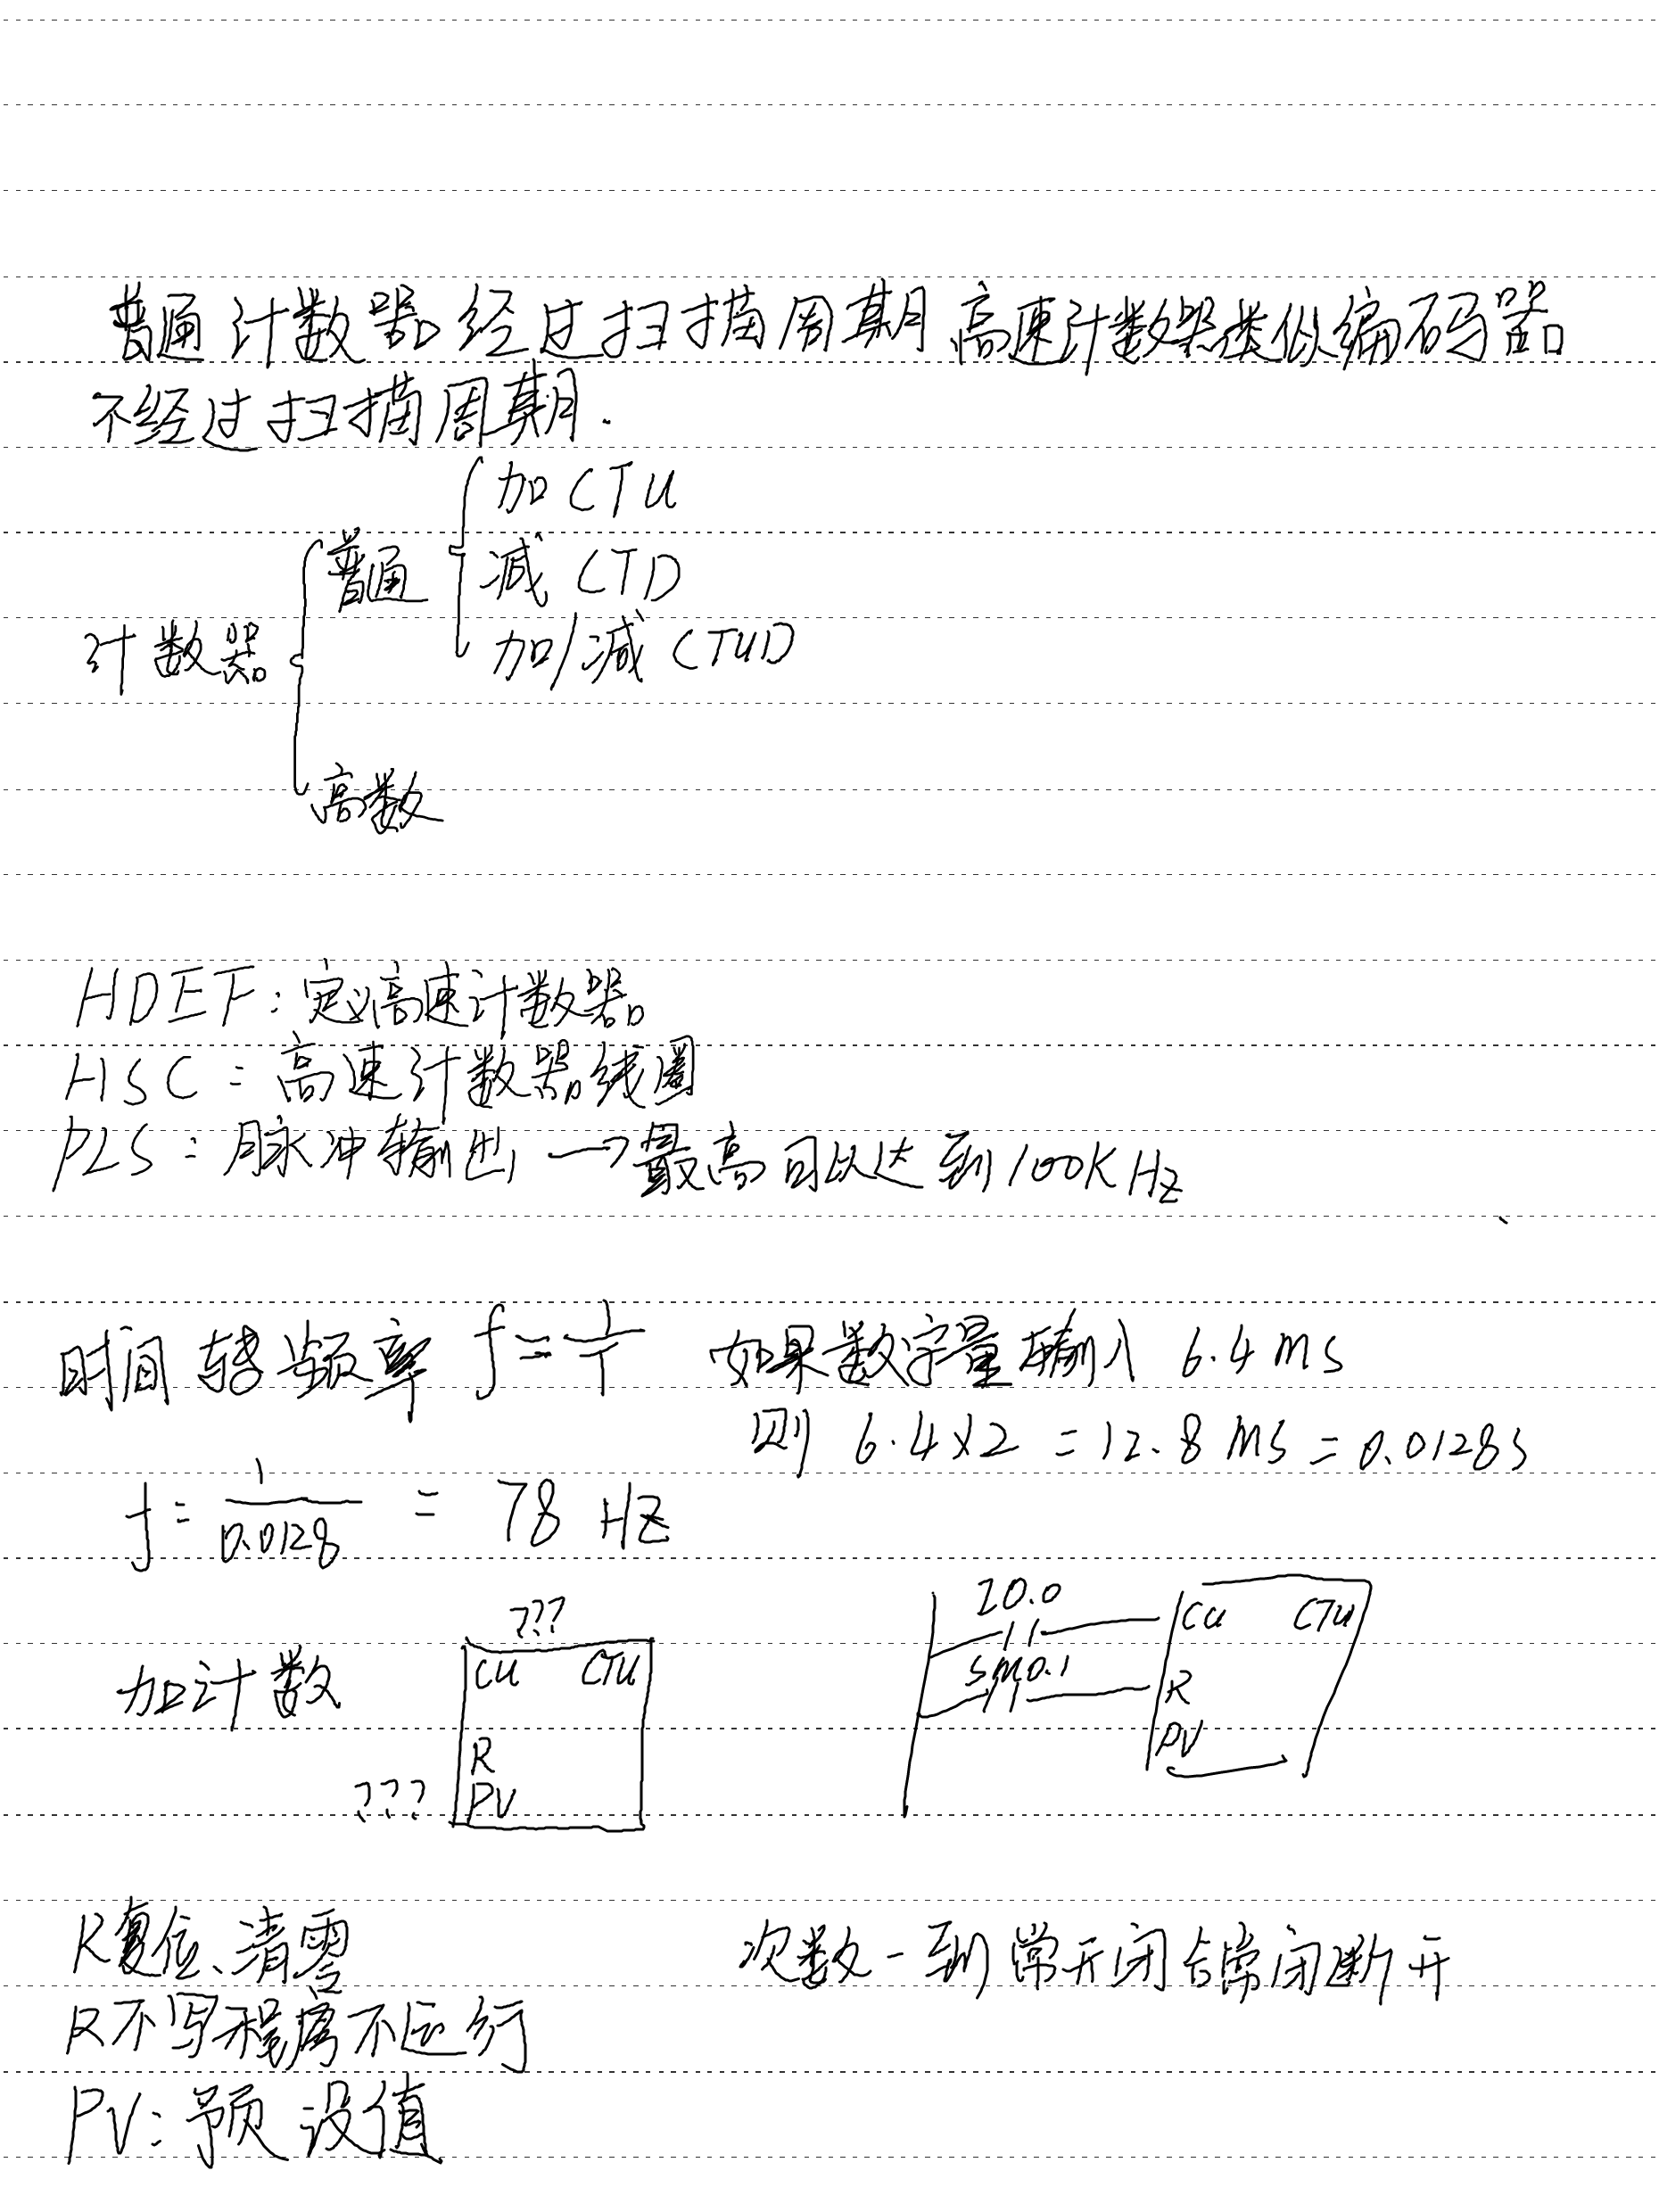 普通计数器经过扫描周期 高速计数器类似编码器
不经过扫描周期.
计数器
普通
加 CTU
减 CTD
加/减 CTUD
高数
HDEF: 定义高速计数器
HSC: 高速计数器线圈
PLS: 脉冲输出 → 最高可以达到100KHz
时间转频率 f=1/T 如果数字量输入 6.4ms
则 6.4×2=12.8ms=0.0128s
f=1/0.0128=78Hz
加计数
???
CU CTU
R
??? PV
I0.0
CU CTU
SM0.1
R
PV
R复位、清零
次数一到 常开闭合常闭断开
R不写程序不运行
PV: 预设值